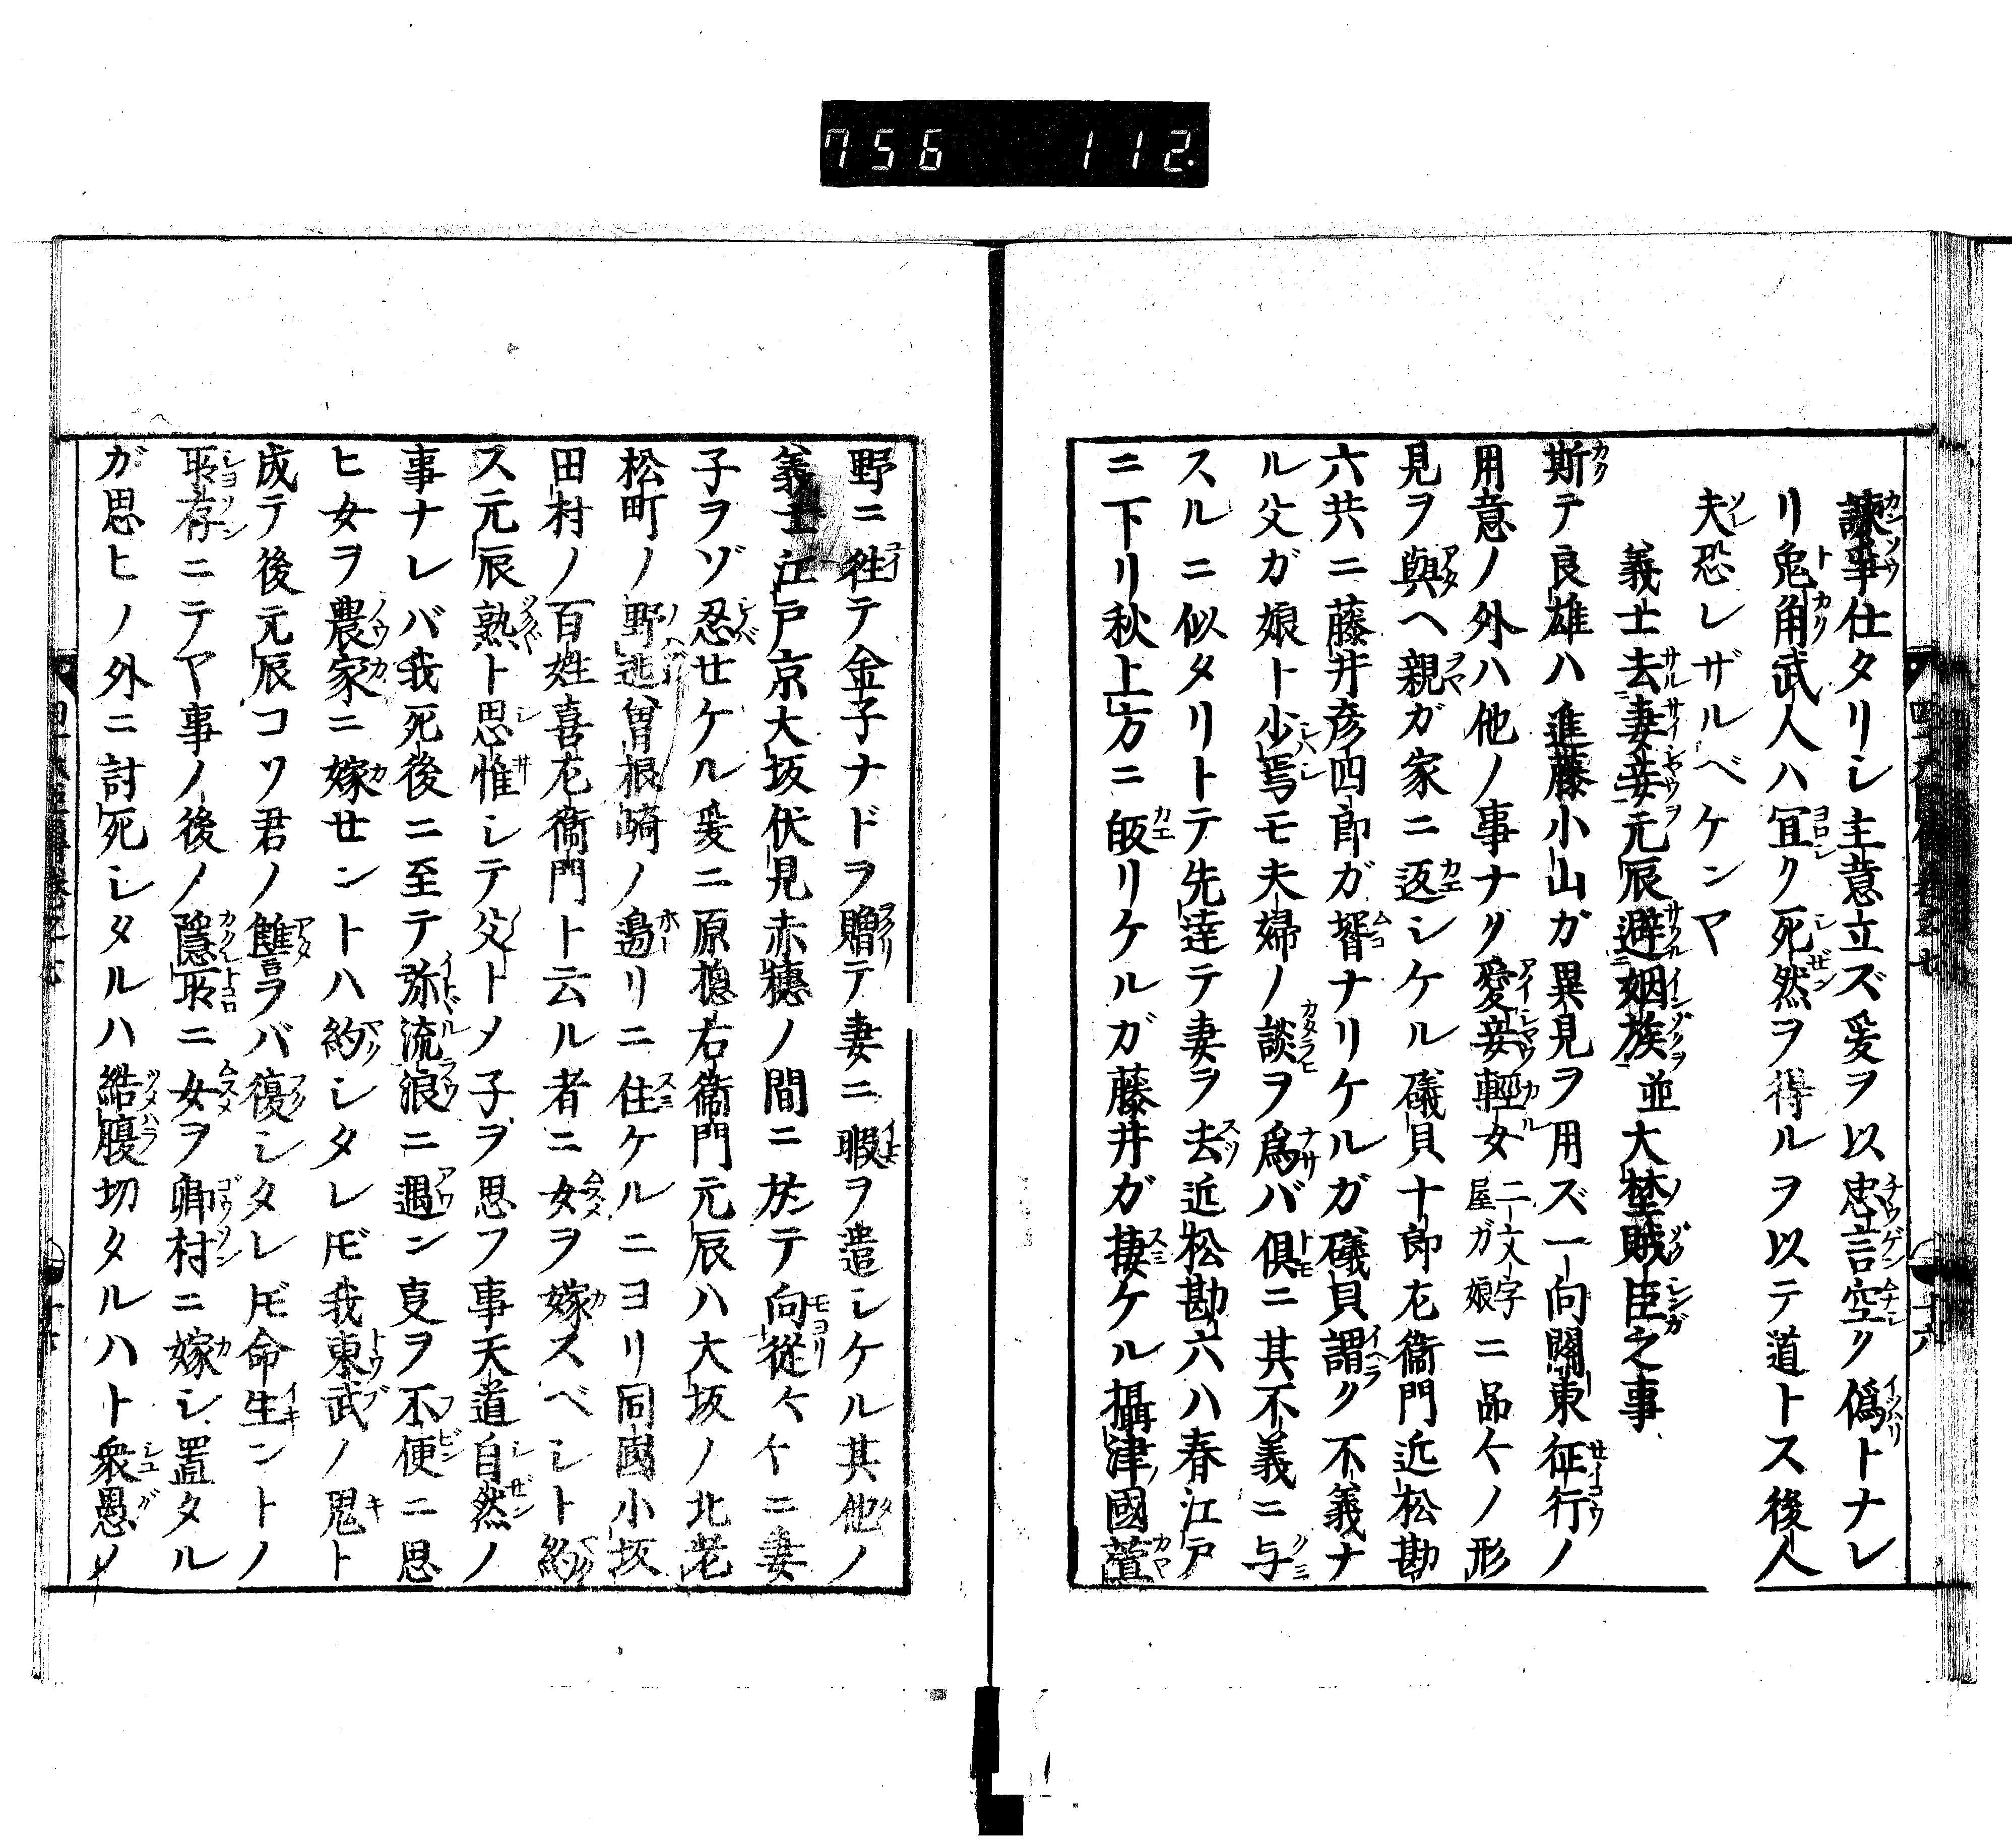 756 112.
諫事仕タリシ主意立ズ爰ヲ以忠言空ク僞トナレ
リ兔角武人ハ冝ク死然ヲ得ルヲ以テ道トス後人
夫恐レザルベケンヤ
義士去妻妾元辰避姻族並大埜賊臣之事
斯テ良雄ハ進藤小山ガ異見ヲ用ズ一向關東征行ノ
用意ノ外ハ他ノ事ナク愛妾輕女二文字屋ガ娘ニ品々ノ形
見ヲ與ヘ親ガ家ニ返シケル礒貝十郎左衞門近松勘
六共ニ藤井彦四郎ガ壻ナリケルガ礒貝謂ク不義ナ
ル父ガ娘ト少焉モ夫婦ノ談ヲ爲バ俱ニ其不義ニ与
スルニ似タリトテ先達テ妻ヲ去近松勘六ハ春江戸
ニ下リ秋上方ニ皈リケルガ藤井ガ捿ケル攝津國萱
野ニ徃テ金子ナドヲ贈テ妻ニ暇ヲ遣シケル其他ノ
義士江戸京大坂伏見赤穗ノ間ニ於テ向從々々ニ妻
子ヲゾ忍せケル爰ニ原揔右衞門元辰ハ大坂ノ北老
松町ノ野逃曾根崎ノ邉リニ住ケルニヨリ同國小坂
田村ノ百姓喜左衞門ト云ル者ニ女ヲ嫁スベシト約
ス元辰熟ト思惟シテ父トメ子ヲ思フ事天道自然ノ
事ナレバ我死後ニ至テ弥流浪ニ遇ン叓ヲ不便ニ思
ヒ女ヲ農家ニ嫁せントハ約シタレ𪜈我東武ノ鬼ト
成テ後元辰コソ君ノ讎ヲバ復シタレ𪜈命生ントノ
所存ニテヤ事ノ後ノ隱所ニ女ヲ卿村ニ嫁シ置タル
ガ思ヒノ外ニ討死シタルハ皓腹切タルハト衆愚ノ